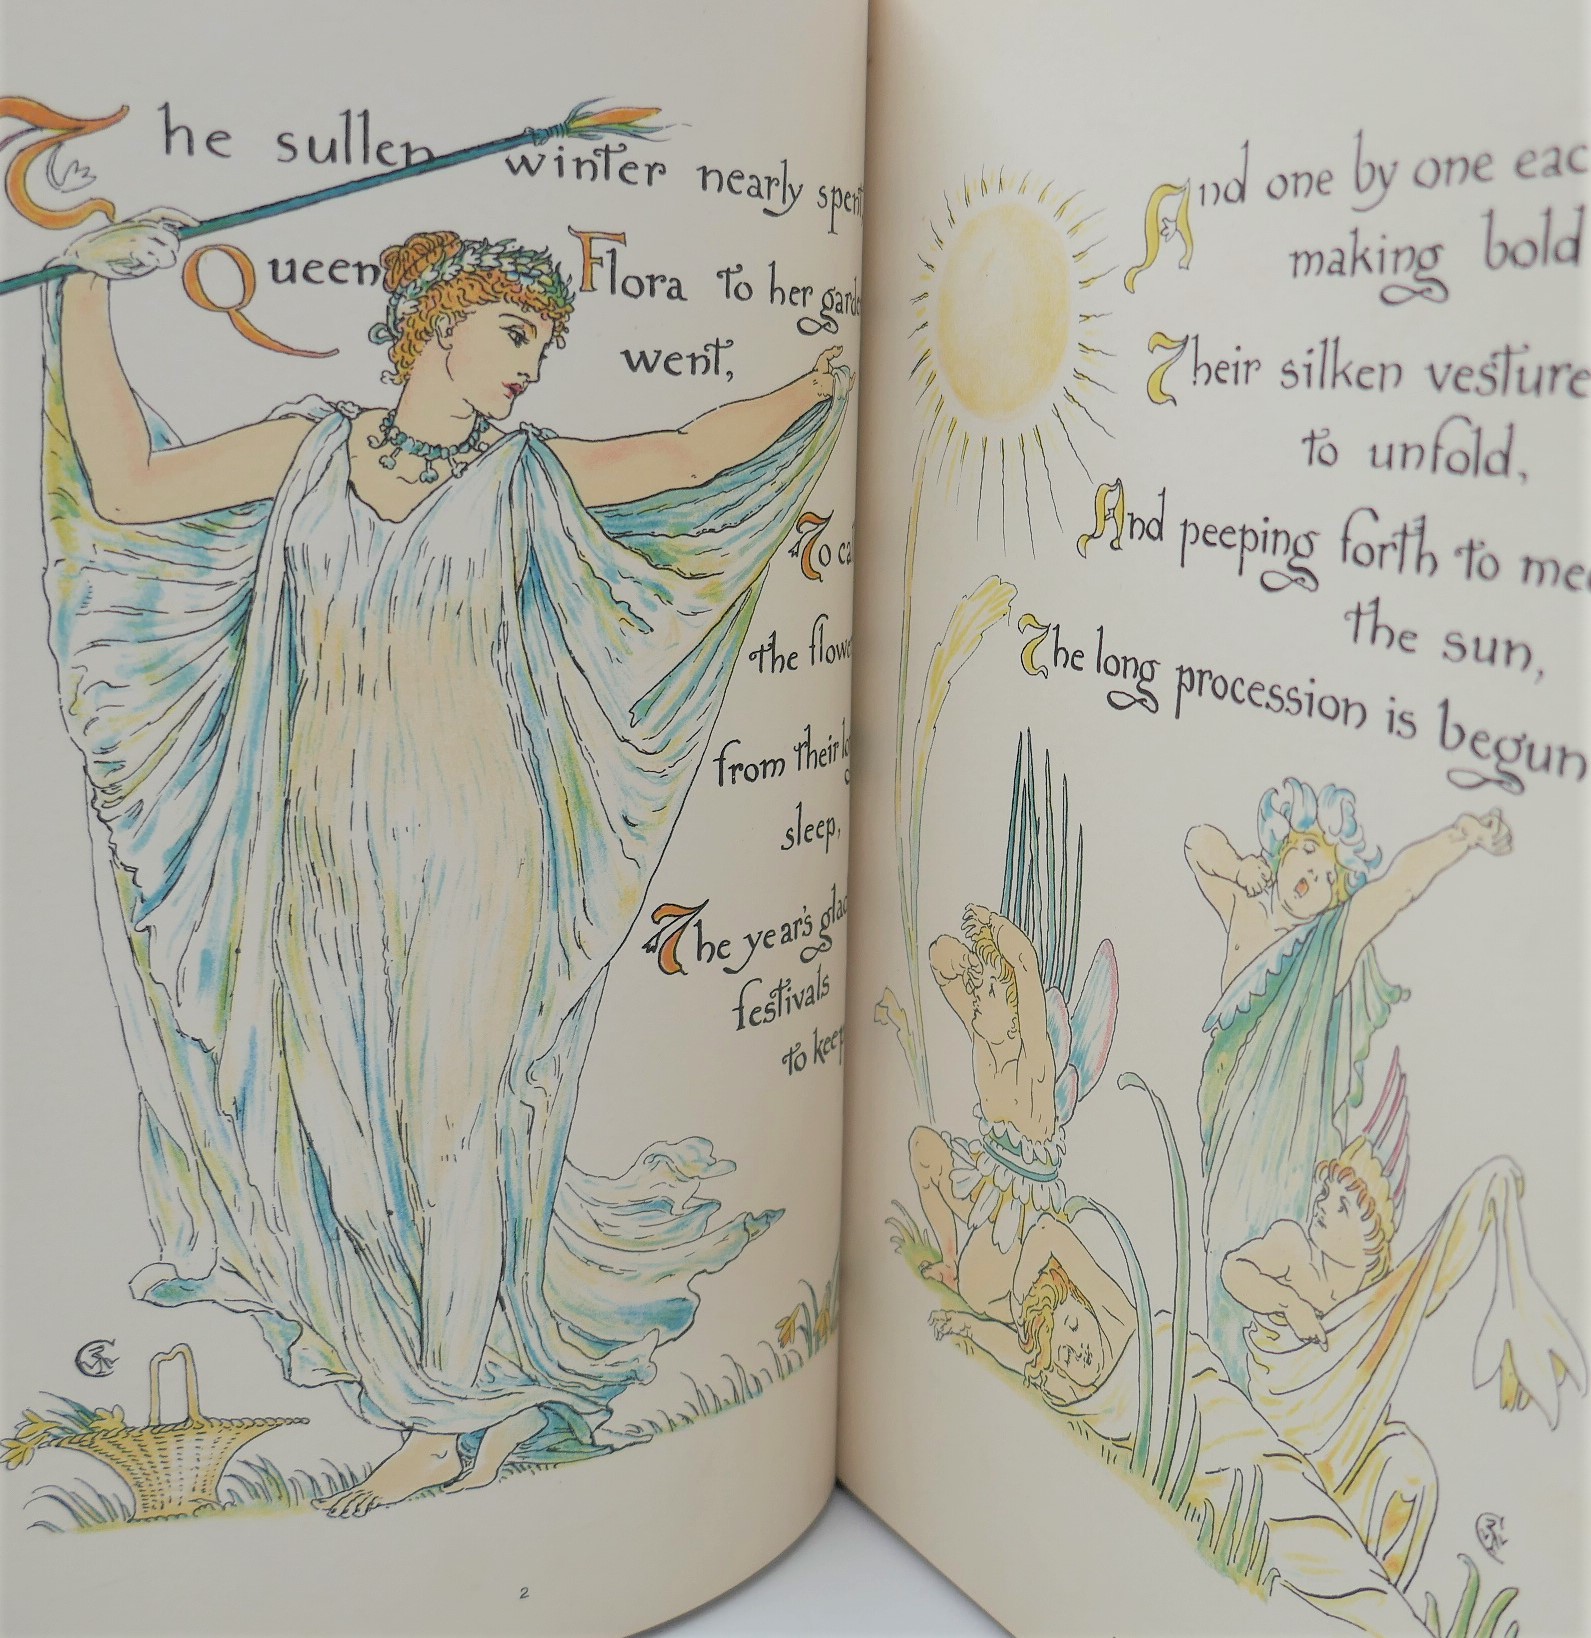 The sullen winter nearly spent,
Queen Flora to her garde
went,
To cal
the flowe
from their lo
sleep,
The year's glad
festivals
to keep
2
And one by one eac
making bold
Their silken vesture
to unfold,
And peeping forth to mee
the sun,
The long procession is begun